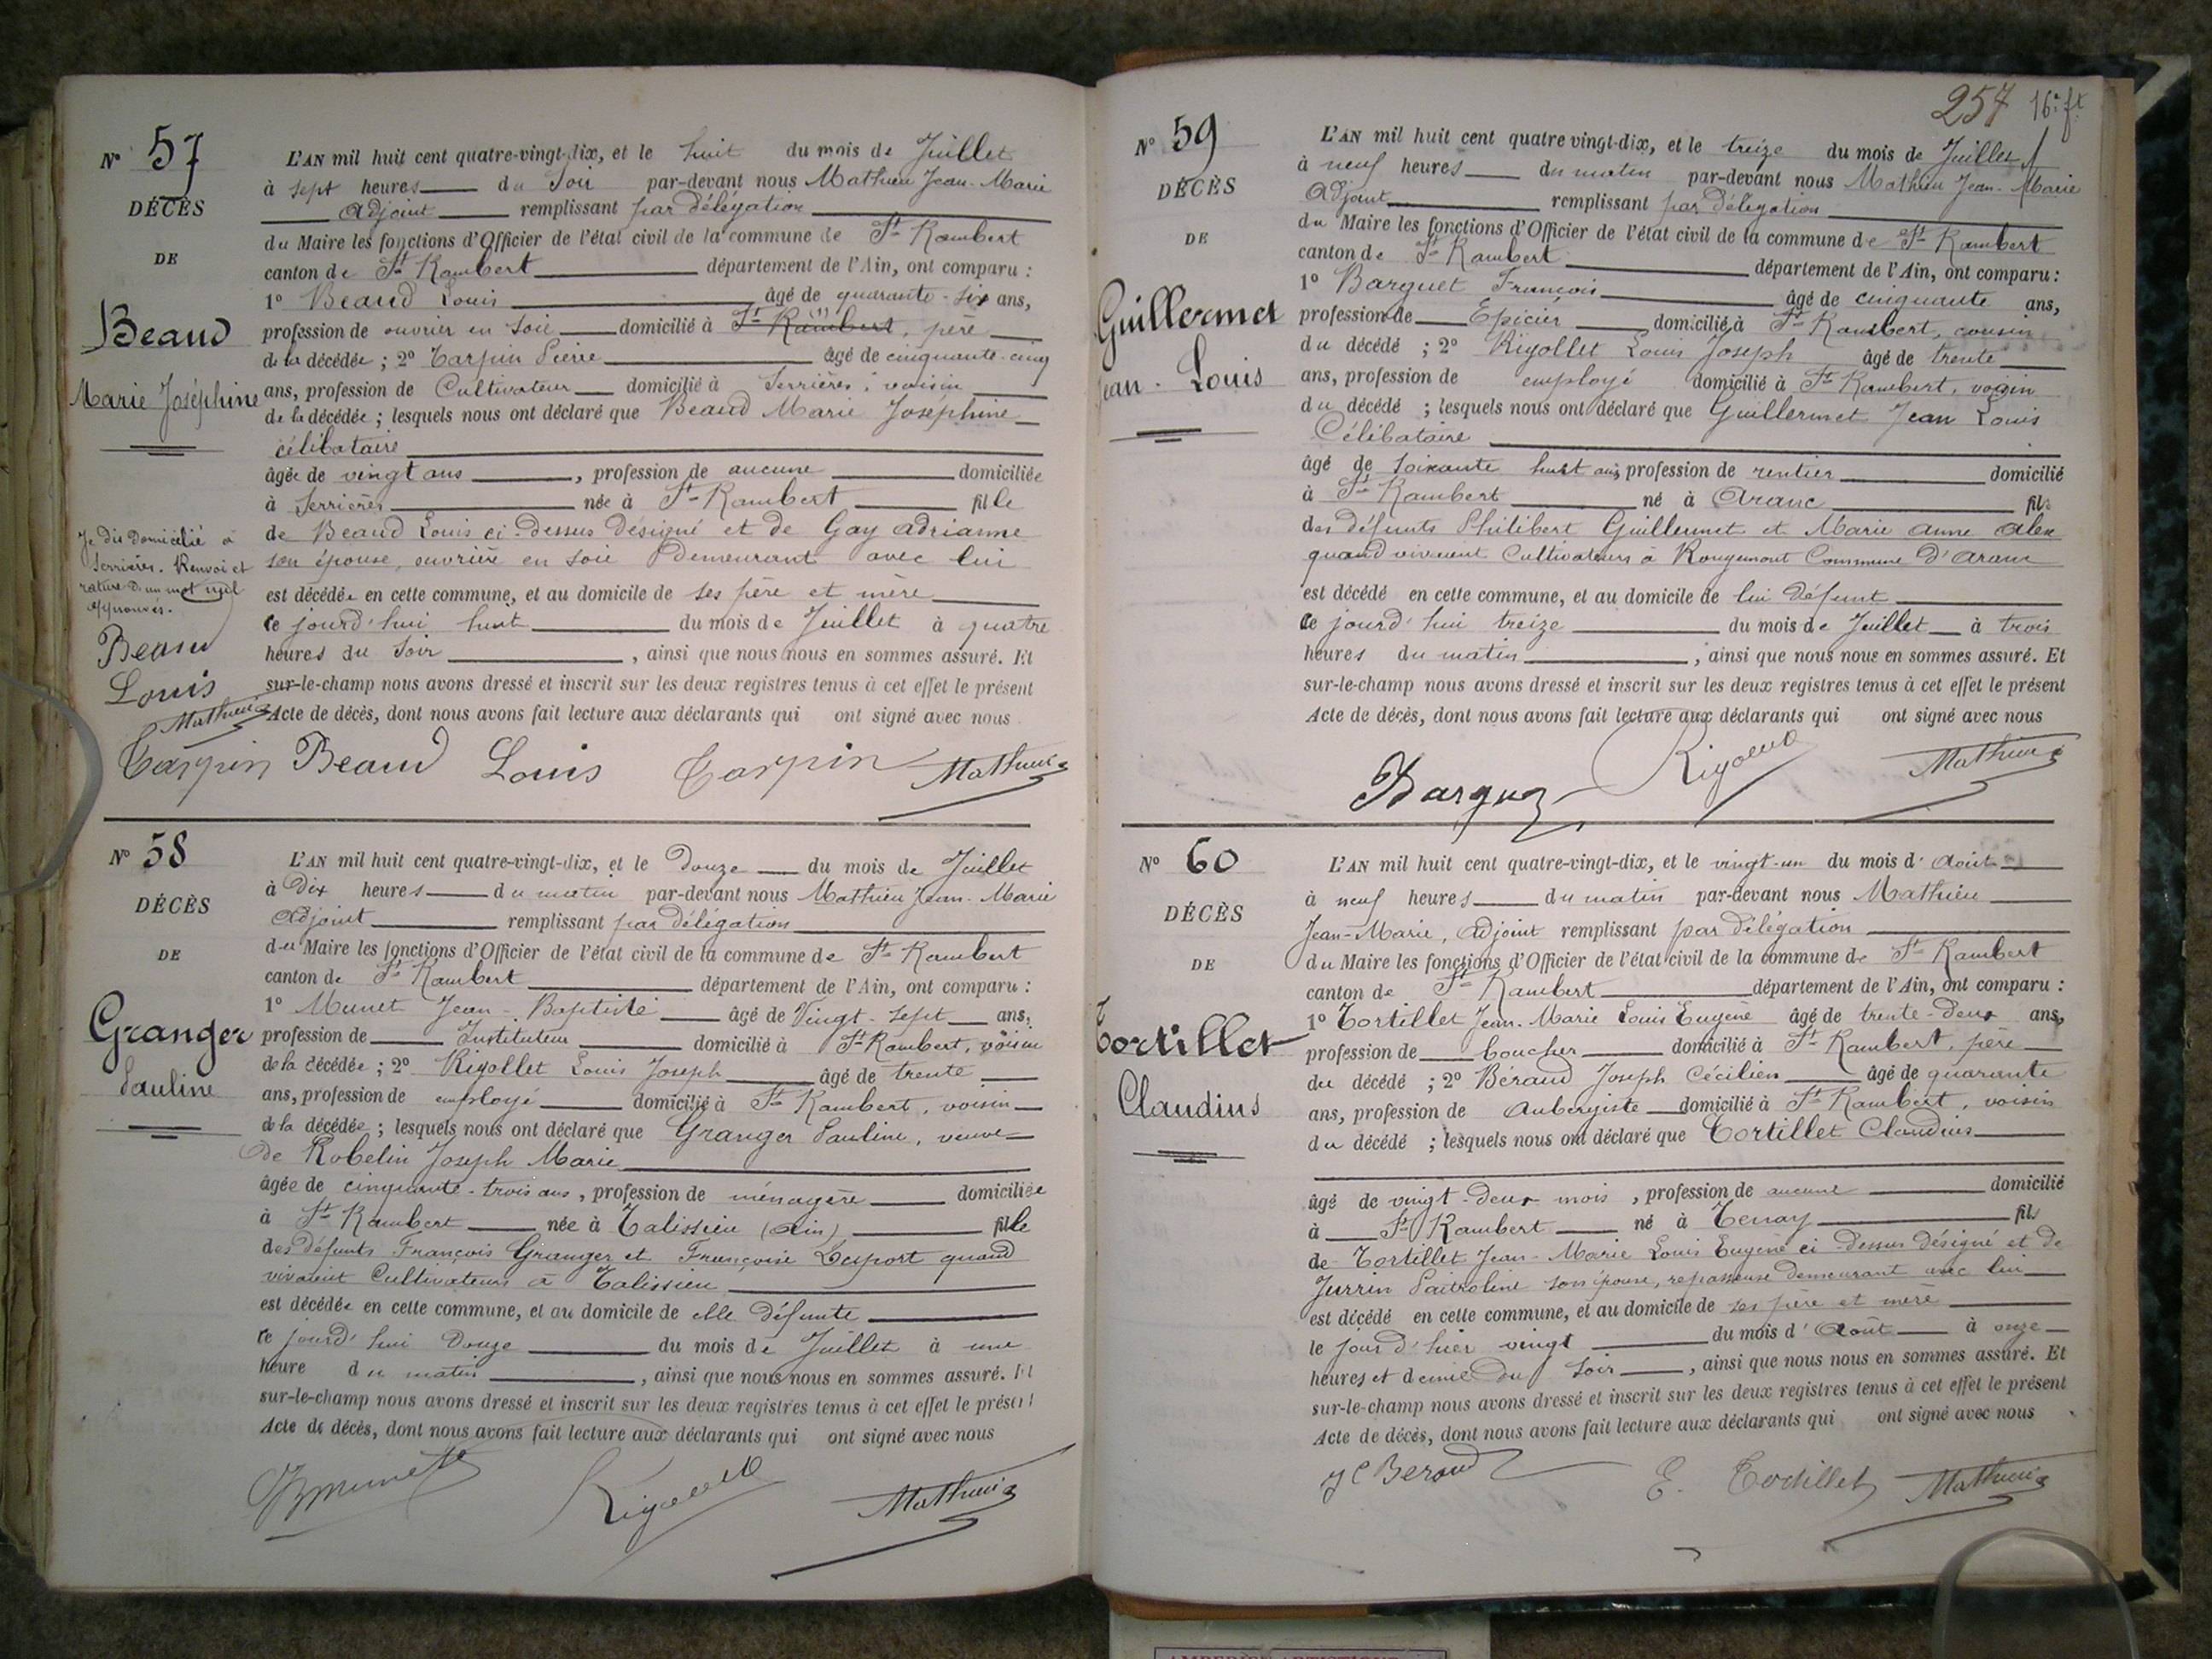 N° 57
DÉCÈS
DE
Beaud
Marie Joséphine
L'AN mil huit cent quatre-vingt-dix, et le huit du mois de Juillet
à sept heures du Soir par-devant nous Mathieu Jean-Marie
Adjoint remplissant par délégation
du Maire les fonctions d'Officier de l'état civil de la commune de St Rambert
canton de St Rambert département de l'Ain, ont comparu :
1° Beaud Louis âgé de quarante-six ans,
profession de ouvrier en soie domicilié à St Rambert, père
de la décédée ; 2° Carpin Pierre âgé de cinquante-cinq
ans, profession de Cultivateur domicilié à Serrières, voisin
de la décédée ; lesquels nous ont déclaré que Beaud Marie Joséphine
célibataire
âgée de vingt ans, profession de aucune domiciliée
à Serrières née à St Rambert fille
de Beaud Louis ci-dessus désigné et de Gay Adrianne
son épouse, ouvrière en soie demeurant avec lui
est décédée en cette commune, et au domicile de ses père et mère
ce jourd'hui huit du mois de Juillet à quatre
heures du Soir, ainsi que nous nous en sommes assuré. Et
sur-le-champ nous avons dressé et inscrit sur les deux registres tenus à cet effet le présent
Acte de décès, dont nous avons fait lecture aux déclarants qui ont signé avec nous
Je dis domicilié à
Serrières. Renvoi et
rature d'un mot nul
approuvés.
Beaud
Louis
Mathieu
Carpin Beaud Louis Carpin Mathieu
N° 58
DÉCÈS
DE
Granger
Pauline
L'AN mil huit cent quatre-vingt-dix, et le douze du mois de Juillet
à Dix heures du matin par-devant nous Mathieu Jean-Marie
Adjoint remplissant par délégation
du Maire les fonctions d'Officier de l'état civil de la commune de St Rambert
canton de St Rambert département de l'Ain, ont comparu :
1° Munet Jean-Baptiste âgé de Vingt-sept ans,
profession de Instituteur domicilié à St Rambert, voisin
de la décédée ; 2° Rigollet Louis Joseph âgé de trente
ans, profession de employé domicilié à St Rambert, voisin
de la décédée ; lesquels nous ont déclaré que Granger Pauline, veuve
de Robelin Joseph Marie
âgée de cinquante-trois ans, profession de ménagère domiciliée
à St Rambert née à Talissieu (Ain) fille
des défunts François Granger et Françoise Desport quand
vivaient Cultivateurs à Talissieu
est décédée en cette commune, et au domicile de elle défunte
ce jourd'hui douze du mois de Juillet à une
heure du matin, ainsi que nous nous en sommes assuré. Et
sur-le-champ nous avons dressé et inscrit sur les deux registres tenus à cet effet le présent
Acte de décès, dont nous avons fait lecture aux déclarants qui ont signé avec nous
JBMunet Rigollet Mathieu
257 16e ft
N° 59
DÉCÈS
DE
Guillermet
Jean-Louis
L'AN mil huit cent quatre vingt-dix, et le treize du mois de Juillet
à neuf heures du matin par-devant nous Mathieu Jean-Marie
Adjoint remplissant par délégation
du Maire les fonctions d'Officier de l'état civil de la commune de St Rambert
canton de St Rambert département de l'Ain, ont comparu :
1° Barquet François âgé de cinquante ans,
profession de Epicier domicilié à St Rambert, cousin
du décédé ; 2° Rigollet Louis Joseph âgé de trente
ans, profession de employé domicilié à St Rambert, voisin
du décédé ; lesquels nous ont déclaré que Guillermet Jean Louis
Célibataire
âgé de soixante huit ans, profession de rentier domicilié
à St Rambert né à Aranc fils
des défunts Philibert Guillermet et Marie Anne Alex
quand vivaient Cultivateurs à Rougemont Commune d'Aranc
est décédé en cette commune, et au domicile de lui défunt
ce jourd'hui treize du mois de Juillet à trois
heures du matin, ainsi que nous nous en sommes assuré. Et
sur-le-champ nous avons dressé et inscrit sur les deux registres tenus à cet effet le présent
Acte de décès, dont nous avons fait lecture aux déclarants qui ont signé avec nous
Barquet Rigollet Mathieu
N° 60
DÉCÈS
DE
Tortillet
Claudius
L'AN mil huit cent quatre-vingt-dix, et le vingt-un du mois d'Août
à neuf heures du matin par-devant nous Mathieu
Jean-Marie, Adjoint remplissant par délégation
du Maire les fonctions d'Officier de l'état civil de la commune de St Rambert
canton de St Rambert département de l'Ain, ont comparu :
1° Tortillet Jean-Marie Louis Eugène âgé de trente-deux ans,
profession de boucher domicilié à St Rambert, père
du décédé ; 2° Béraud Joseph Cécilien âgé de quarante
ans, profession de Aubergiste domicilié à St Rambert, voisin
du décédé ; lesquels nous ont déclaré que Tortillet Claudius
âgé de vingt-deux mois, profession de aucune domicilié
à St Rambert né à Tenay fils
de Tortillet Jean-Marie Louis Eugène ci-dessus désigné et de
Jurrin son épouse, repasseuse demeurant avec lui
est décédé en cette commune, et au domicile de ses père et mère
le jour d'hier vingt du mois d'Août à onze
heures et demie du Soir, ainsi que nous nous en sommes assuré. Et
sur-le-champ nous avons dressé et inscrit sur les deux registres tenus à cet effet le présent
Acte de décès, dont nous avons fait lecture aux déclarants qui ont signé avec nous
JC Beraud E. Tortillet Mathieu